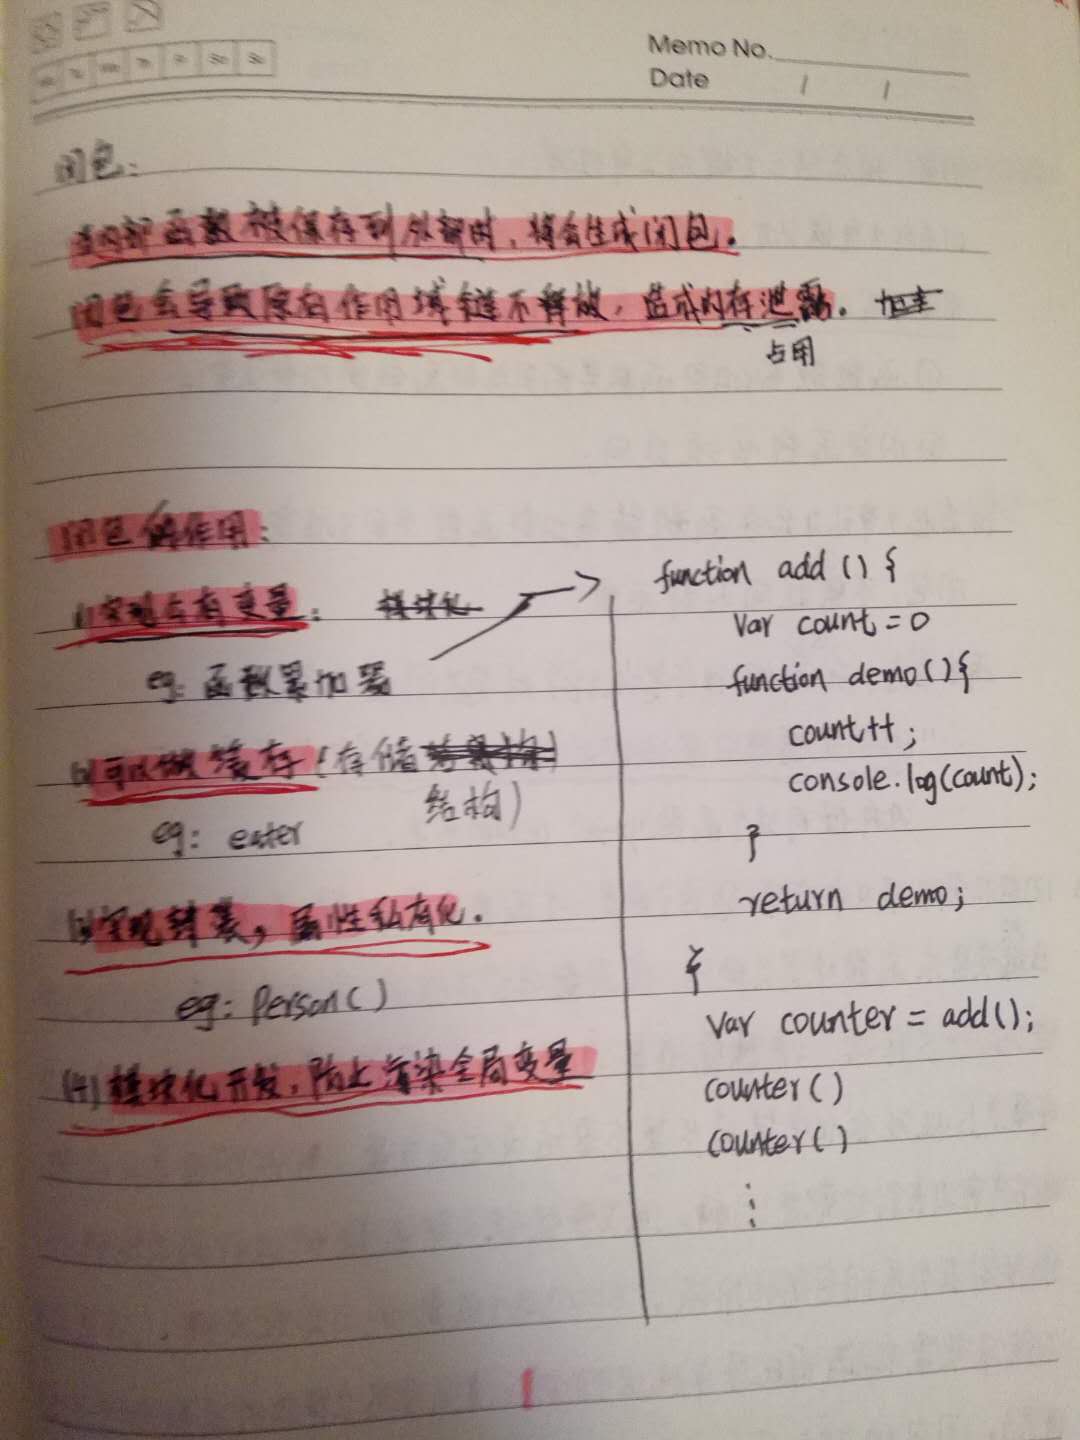 Memo No.
Date / /
闭包:
当内部函数被保存到外部时,将会生成闭包.
闭包会导致原有作用域链不释放,造成内存泄露.
占用
闭包的作用:
(1)实现公有变量:
eg: 函数累加器
(2)可以做缓存(存储
结构)
eg: eater
(3)实现封装,属性私有化.
eg: Person()
(4)模块化开发,防止污染全局变量
function add () {
Var count = 0
function demo(){
count++;
console.log(count);
}
return demo;
}
Var counter = add();
counter()
counter()
⋮